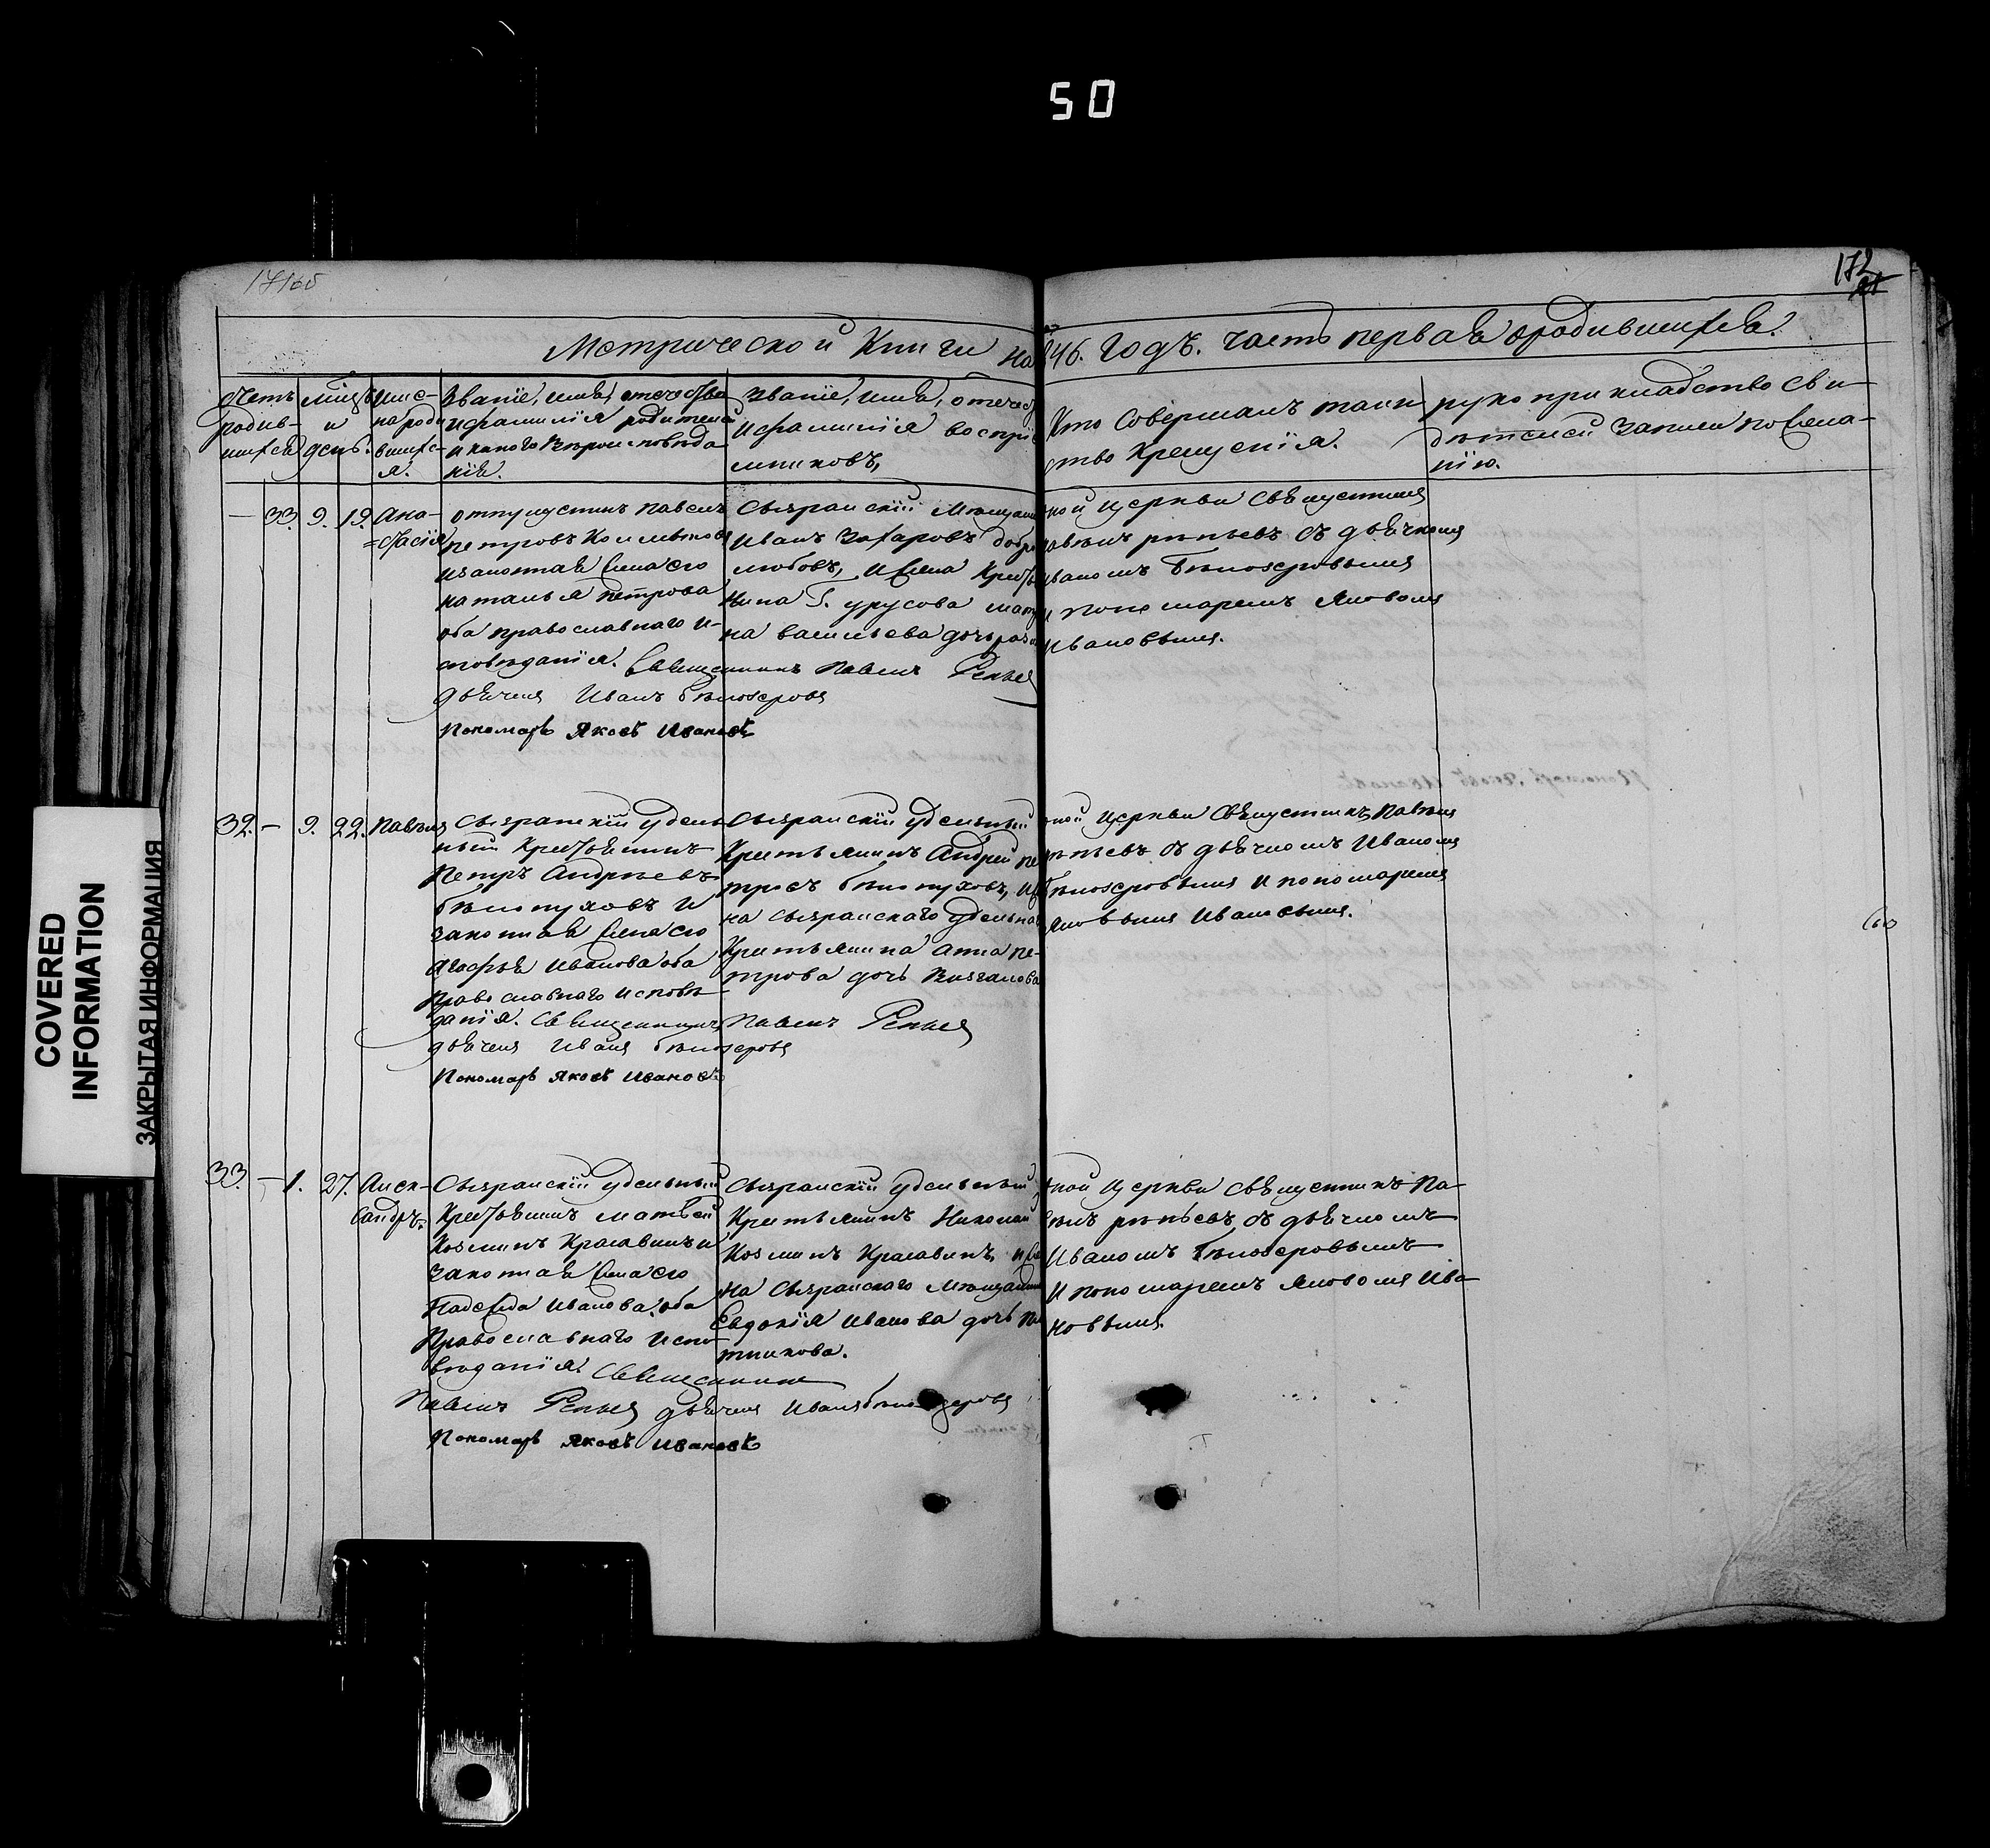 50
172
Метрической Книги на 1846. годъ. часть первая о родившихся.
Счетъ родив-шихся
мѣсяцъ и день.
имена родившихся.
Званіе, имя, отечество
и фамилія родителей
и какого вѣроисповѣда-
нія.
Званіе, имя, отечест
и фамилія воспрі
мниковъ,
Кто совершалъ таин
ство крещенія.
рукоприкладство сви-
дѣтелей записи по жела-
нію.
— 33. 9. 19. Ана-
=стасія
отпущеникъ Павелъ
Петровъ
законная жена его
Наталья Петрова
оба православнаго и-
сповѣданія. Священникъ Павелъ Репьев
дьячекъ Иванъ Бѣлозеровъ
Пономарь Яковъ Ивановъ
Сызранскій Мѣщани
Иванъ Захаровъ добро
любовъ, и жена Крестья
нина Г. Урусова
на Васильева дочь
ной церкви Священникъ
Павелъ Рѣпьевъ съ дьячкомъ
Иваномъ Бѣлозеровымъ
и пономаремъ Яковомъ
Ивановымъ.
32. — 9. 22. Павелъ
Сызранскій удѣль-
ный Крестьянинъ
Петръ Андреевъ
Бѣлопуховъ и
законная жена его
Агафья Иванова оба
православнаго исповѣ-
данія. Священникъ Павелъ Репьев
дьячекъ Иванъ Бѣлозеровъ
Пономарь Яковъ Ивановъ
Сызранскій удѣльный
Крестьянинъ Андрей Пе
тровъ Бѣлопуховъ, и же
на сызранскаго удѣльна
Крестьянина Анна Пе-
трова дочь
ной церкви Священникъ Павелъ
Рѣпьевъ съ дьячкомъ Иваномъ
Бѣлозеровымъ и пономаремъ
Яковымъ Ивановымъ.
33. — 1. 27. Алек-
сандръ.
Сызранскій удѣльный
Крестьянинъ Матвей
Козминъ Красавинъ и
законная жена его
Надежда Иванова. оба
Православнаго испо-
вѣданія. Священникъ
Павелъ Репьев дьячекъ Иванъ Бѣлозеровъ
Пономарь Яковъ Ивановъ
Сызранскій удѣльный
Крестьянинъ Николай
Козминъ Красавинъ, и же
на Сызранскаго Мѣщанина
Евдокія Иванова дочь Пло
тникова.
ной церкви священникъ Па-
велъ Рѣпьевъ, съ дьячкомъ
Иваномъ Бѣлозеровымъ
и пономаремъ Яковомъ Ива-
новымъ.
COVERED
INFORMATION
ЗАКРЫТАЯ ИНФОРМАЦИЯ